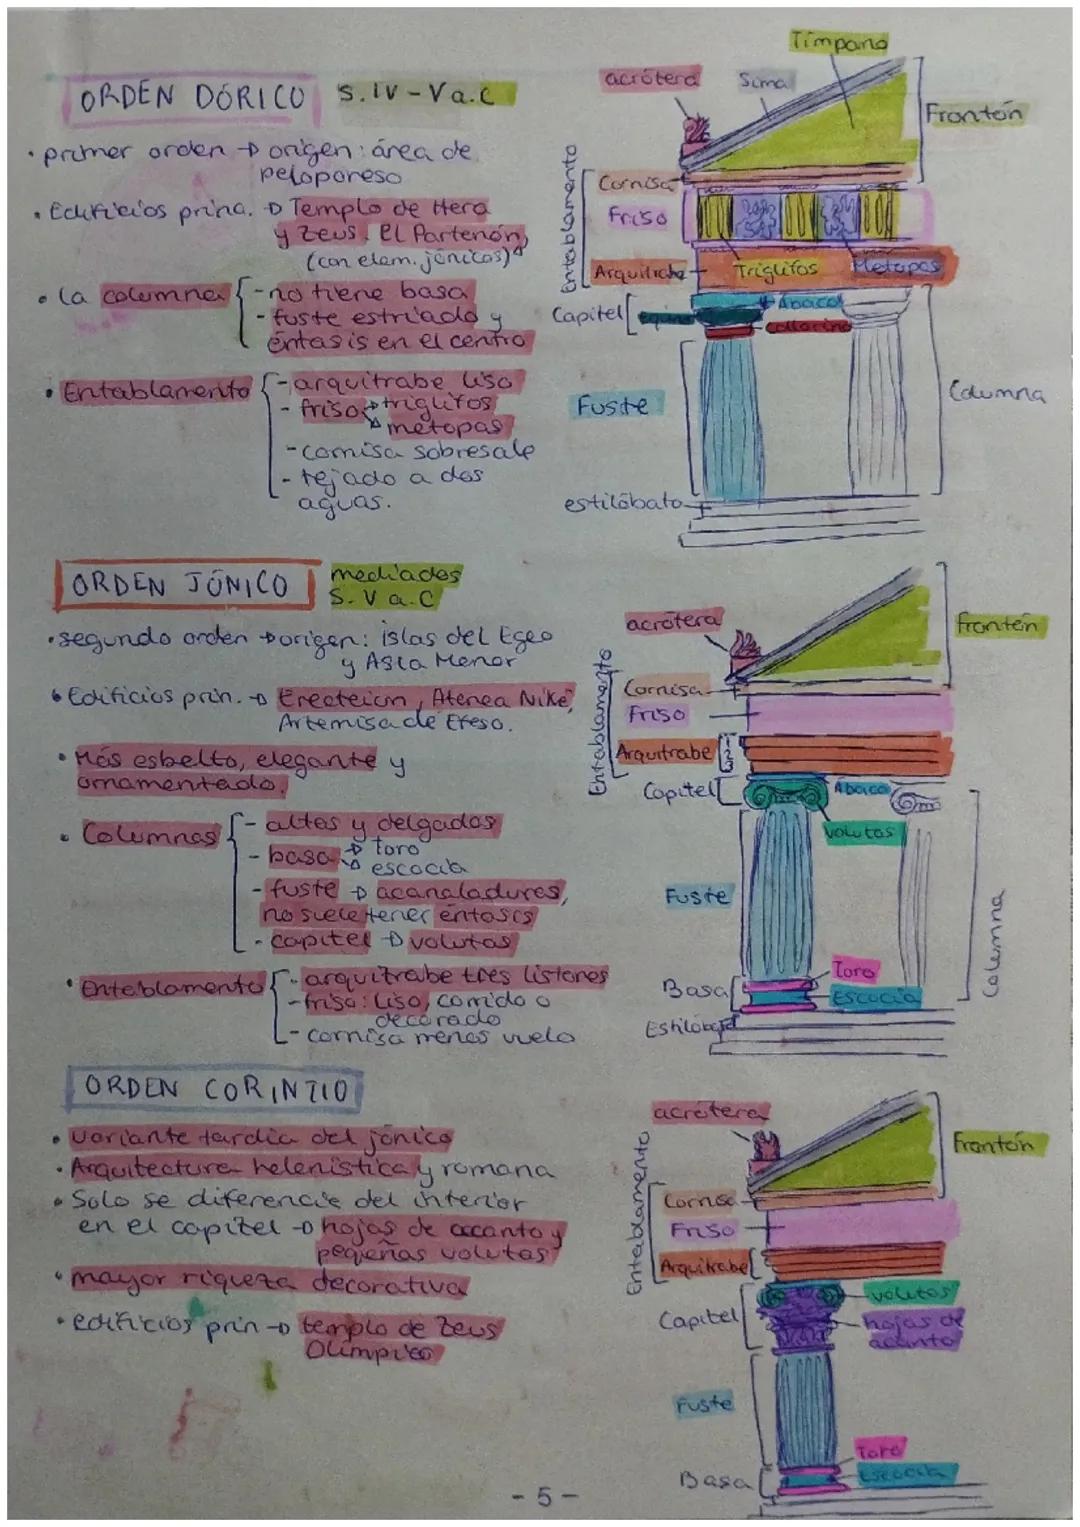 ORDEN DÓRICO S. IV - V a.C
· primer orden → origen: área de
peloponeso
· Edificios princ. → Templo de Hera
y Zeus. El Partenón,
(con elem. jónicos)
· La columna - no tiene basa
- fuste estriado y
éntasis en el centro
· Entablamento - arquitrabe liso
- friso → triglifos
→ metopas
- cornisa sobresale
- tejado a dos
aguas.
Tímpano
acrótera
Sima
Frontón
Entablamento
Cornisa
Friso
Arquitrabe
Triglifos
Metopas
Capitel
equino
Abaco
collarino
Fuste
Columna
estilóbato
ORDEN JÓNICO mediados
S. V a.C
· segundo orden → origen: islas del Egeo
y Asia Menor
· Edificios prin. → Erecteion, Atenea Niké,
Artemisa de Efeso.
· Más esbelto, elegante y
ornamentado.
· Columnas - altas y delgadas
- basa → toro
→ escocia
- fuste → acanaladures,
no suele tener éntasis
- capitel → volutas
· Entablamento - arquitrabe tres listones
- friso: liso, corrido o
decorado
- cornisa menos vuelo
acrótera
frontón
Entablamento
Cornisa
Friso
Arquitrabe
1
2
3
Capitel
Abaco
volutas
Fuste
Columna
Basa
Toro
Escocia
Estilóbato
ORDEN CORINTIO
· variante tardía del jónico
· Arquitectura helenística y romana
· Solo se diferencie del interior
en el capitel → hojas de acanto y
pequeñas volutas
· mayor riqueza decorativa
· edificios prin → templo de Zeus
Olímpico
acrótera
Frontón
Entablamento
Cornisa
Friso
Arquitrabe
Capitel
volutas
hojas de
acanto
Fuste
Basa
Toro
Escocia
- 5 -